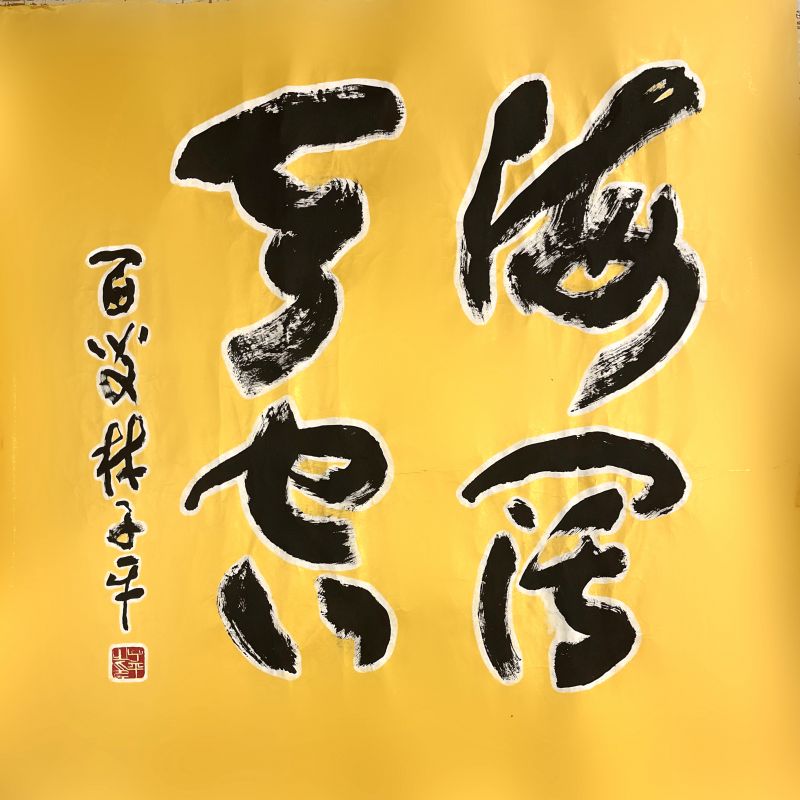 海阔
天空
百 林子平